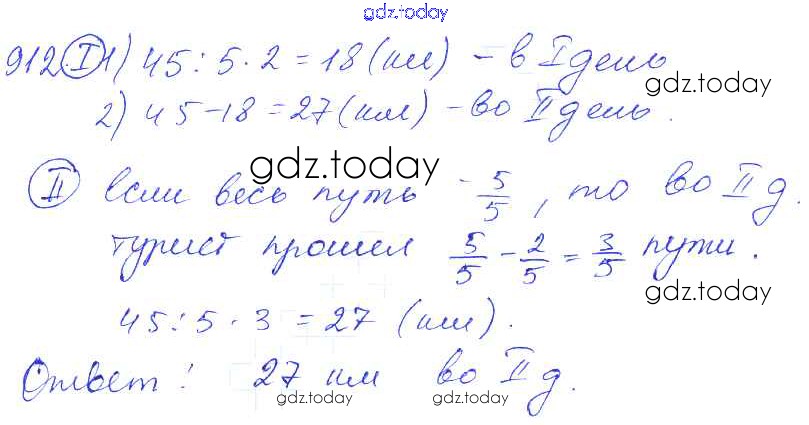 gdz.today
912. I 1) 45 : 5 · 2 = 18 (км) – в I день
gdz.today
2) 45 – 18 = 27 (км) – во II день.
gdz.today
II Если весь путь – 5/5, то во II д.
турист прошел 5/5 – 2/5 = 3/5 пути.
gdz.today
45 : 5 · 3 = 27 (км).
Ответ: 27 км во II д.
gdz.today gdz.today